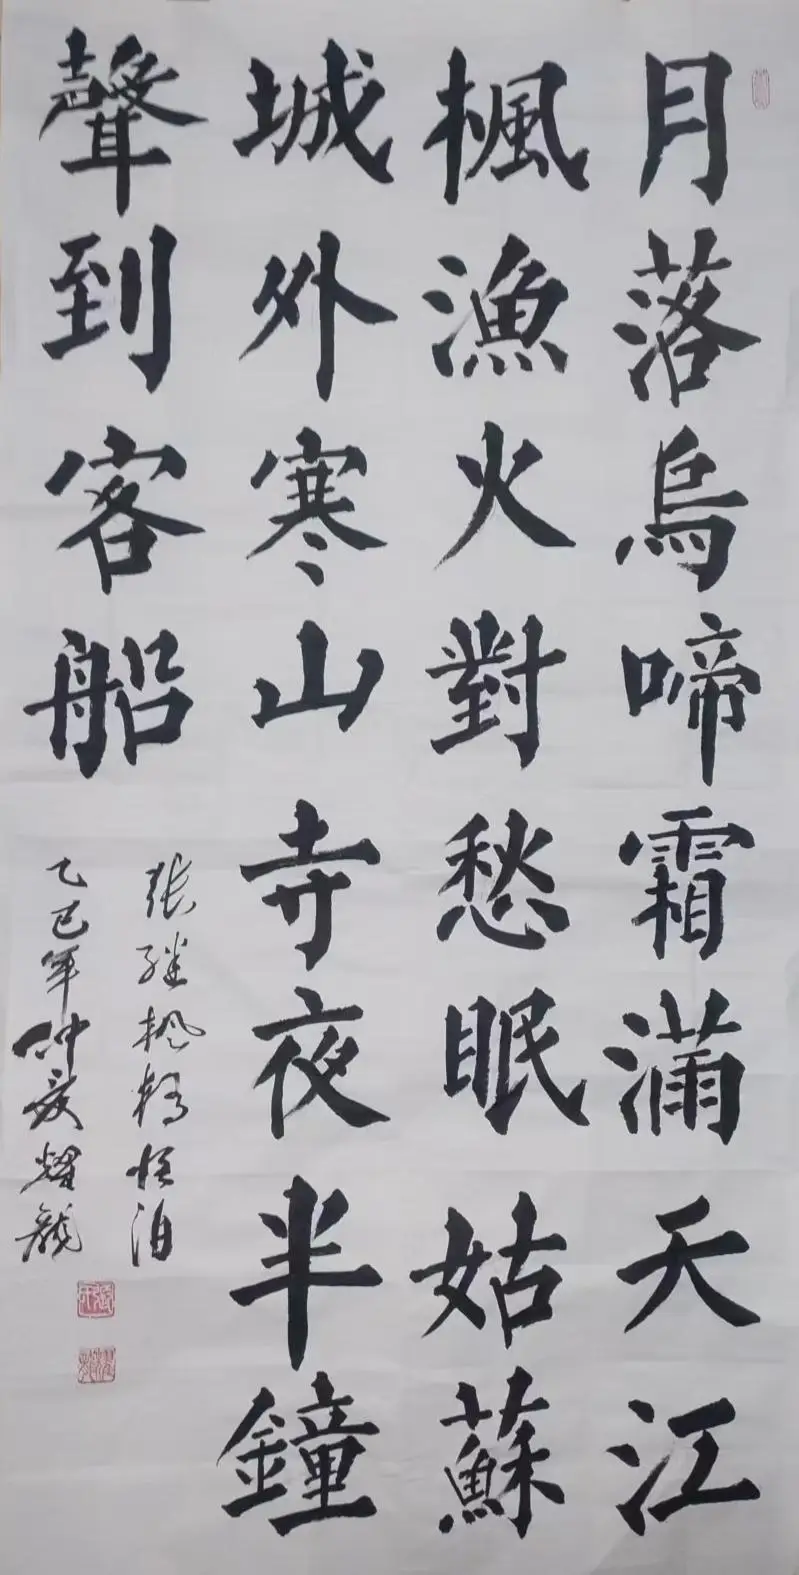 月落烏啼霜滿天江
楓漁火對愁眠姑蘇
城外寒山寺夜半鐘
聲到客船
张继枫桥夜泊
乙巳年仲夏耀龍